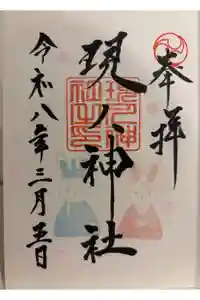 奉拝
現人神社
令和八年三月五日